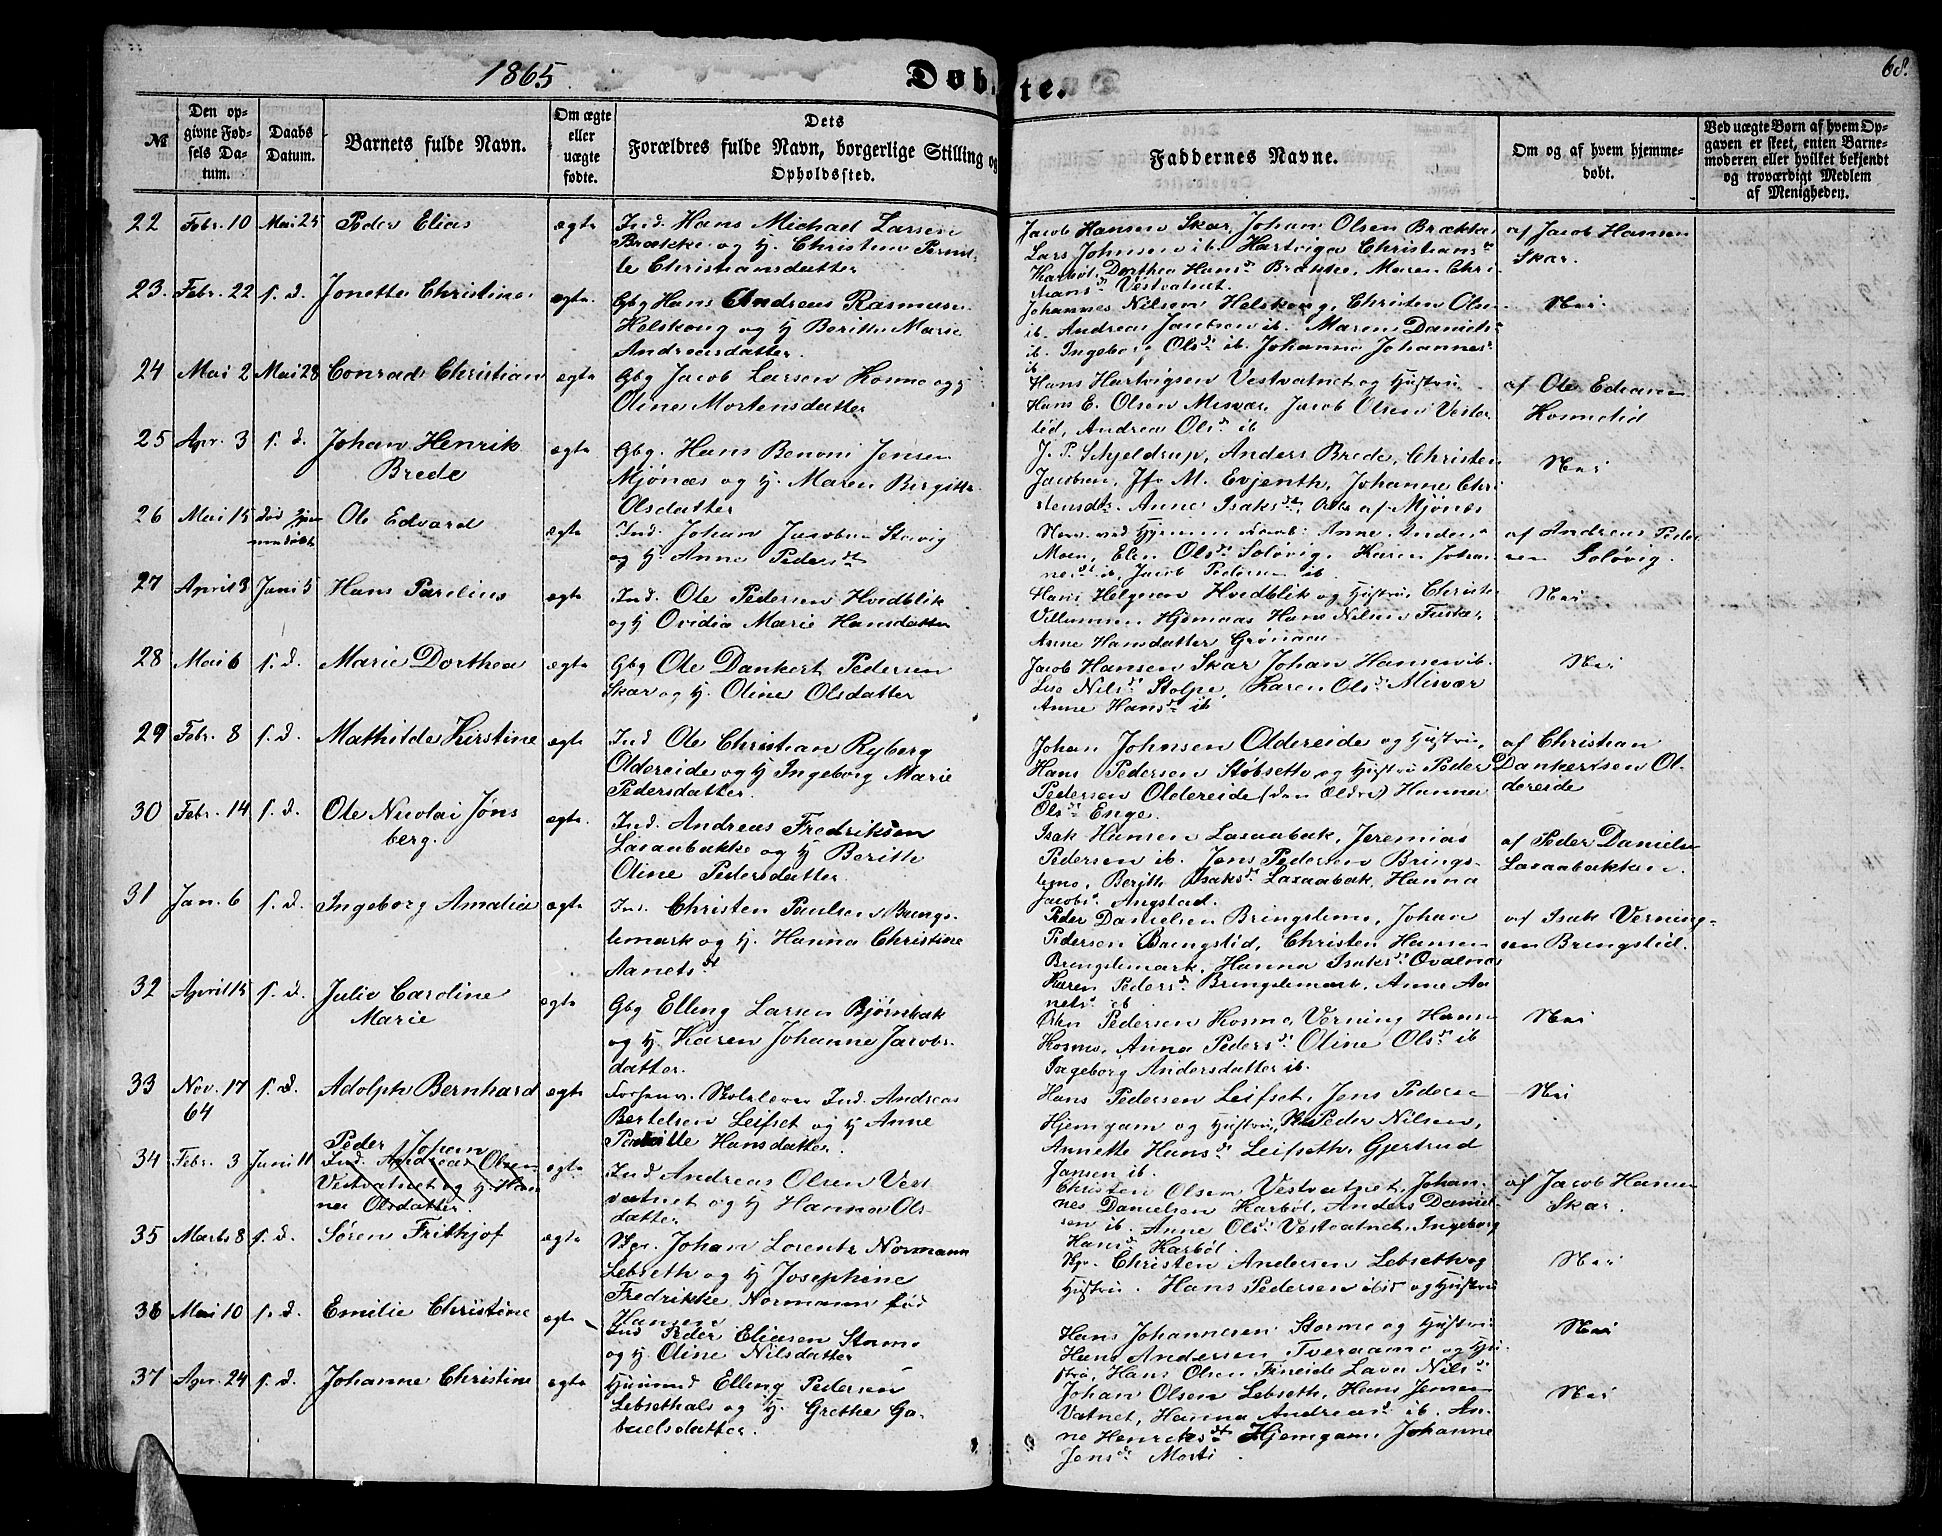 1865
Døbte.
68.
№
Den opgivne Fødsels Datum.
Daabs Datum.
Barnets fulde Navn.
Om ægte eller uægte fødte.
Dets Forældres fulde Navn, borgerlige Stilling og Opholdssted.
Faddernes Navne.
Om og af hvem hjemmedøbt.
Ved uægte Børn af hvem Opgaven er skeet, enten Barnemoderen eller hvilket bekjendt og troværdigt Medlem af Menigheden.
22 Febr. 10 Mai 25 Peder Elias ægte
Ind. Hans Michael Larsen
Brække og h. Christine Pernil-
le Christiansdatter
Jacob Hansen Skar, Johan Olsen Brække
Lars Johnsen ib. Hartviga Christians dt
Karbøl, Dorthea Hans dt Brække, Maren Chri
stians dt Vestvatnet.
af Jacob Hansen
Skar.
23. Febr. 22 s. d. Jonette Christine ægte.
Gbg Hans Andreas Rasmuss.
Helskoug og h Beritte Marie
Andreasdatter.
Johannes Nilsen Helskoug, Christen Olsen
ib. Andreas Jacobsen ib. Maren Daniels dt
ib. Ingeborg Ols dt ib. Johanna Johannes dt
ib
Nei
24 Mai 2 Mai 28 Conrad Christian ægte
Gbg Jacob Larsen Kosmo og h
Oline Mortensdatter
Hans Hartvigsen Vestvatnet og Hustru
Hans E. Olsen Misvær, Jacob Olsen Vester
lid, Andrea Ols dt ib
af Ole Edvard
25 Apr. 3 s. d. Johan Henrik
Brede
ægte
Gbg. Hans Benoni Jensen
Mjønæs og h. Maren Bergitte
Olsdatter
J. P. Schjeldrup, Anders Brede, Christen
Jacobsen, Jfr M. Evjenth, Johanne Chri
stensdt. Anne Isaks dt, af Mjønæs
Nei
26 Mai 15 Ole Edvard ægte
Ind. Johan Jacobsen
og h. Anne Peders dt
Moen, Elen Ols dt Soløvig, Karen Johan
nes dt ib, Jacob Pedersen ib.
af Andreas Peder
sen Soløvig.
27 April 3 Juni 5 Hans Parelius ægte
Ind. Ole Pedersen Hvidblik
og h Ovidia Marie Hansdatter
Hans Helgesen Hvidblik og Hustru, Christ.
Villumsen Hjemaas Hans Nilsen
Anne Hansdatter Grønaaen
Nei
28 Mai 6 s. d. Marie Dorthea ægte
Gbg Ole Dankert Pedersen
Skar og h. Oline Olsdatter
Jacob Hansen Skar Johan Hansen ib.
Lise Nils dt Stolpe, Karen Ols dt Misvær
Anne Hans dt ib
Nei
29 Febr. 8 s. d. Mathilde Kirstine ægte
Ind Ole Christian Ryberg
Oldereide og h Ingeborg Marie
Pedersdatter.
Johan Johnsen Oldereide og Hustru,
Hans Pedersen Støbseth og Hustru Peder
Pedersen Oldereide (den Ældre) Hanna
Ols dt Enge.
af Christian
Dankertsen Ol-
dereide
30 Febr. 14 s. d. Ole Nicolai Jøns
berg.
ægte.
Ind. Andreas Fredriksen
Laxaabakke og h Berith
Oline Pedersdatter.
Isak Hansen Laxaabak, Jeremias
Pedersen ib. Jens Pedersen Brings-
limo, Berith Isaks dt Laxaabak, Hanna
Jacobs dt Angstad.
af Peder Daniels
Laxaabakken.
31 Jan. 6 s. d. Ingeborg Amalia ægte
Ind. Christen Paulsen Brings-
lemark og h. Hanna Christine
Aanets dt
Peder Danielsen Bringslimo, Johan
Pedersen Bringslid, Christen Hansen
Bringslemark, Hanna Isaks dt
Karen Peders dt Bringslemark, Anne Aa
nets dt ib
af Isak Verning-
sen Bringslid.
32 April 15 s. d. Julie Caroline
Marie
ægte
Gbg Elling Larsen Bjørnbak
og h. Karen Johanne Jacobs-
datter.
Pedersen Kosmo, Verning Hansen
Kosmo, Anna Peders dt Oline Ols dt ib
Ingeborg Andersdatter ib.
Nei
33 Nov. 17 s. d. Adolph Bernhard ægte
64
Skolelærer Ind. Andreas
Bertelsen Leifset og h Anne
Hansdatter.
Hans Pedersen Leifset, Jens Pedersen
Hjemgam og Hustru, Peder Nilsen,
Annette Hans dt Leifseth, Gjertrud
Jansen ib.
Nei
34 Febr. 3 Juni 11 Peder Johan
Ind. Andreas Olsen
Vestvatnet og h Han
na Olsdatter.
ægte
Ind Andreas Olsen Vest
vatnet og h Hanna Ols-
datter
Christen Olsen Vestvatnet, Johan-
nes Danielsen Karbøl, Anders Daniel-
sen ib. Anne Ols dt Vestvatnet, Ingeborg
Hans dt Karbøl.
af Jacob Hansen
Skar.
35 Marts 8 s. d. Søren Frithjof ægte
Johan Lorentz Normann
Lebseth og h Josephine
Fredrikke Normann fød
Hansen
Christen Andersen Lebseth og
Hustru. Hans Pedersen ibid og Hustru
Nei
36 Mai 10 s. d. Emilie Christine ægte
Ind Peder Eliasen Stormo
og h. Oline Nilsdatter
Hans Johannesen Stormo og Hustru
Hans Andersen Tveraamo og Hu-
stru, Hans Olsen Fineide Lava Nils dt
Nei
37 Apr. 24 s. d. Johanne Christine ægte
Husmd Elling Pedersen
Lebsethals og h. Grethe Ga-
brielsdatter.
Johan Olsen Lebseth, Hans Jensen
Vatnet, Hanna Andreas dt ib. An-
ne Henriks dt Hjemgam, Johanne
Jens dt
Nei